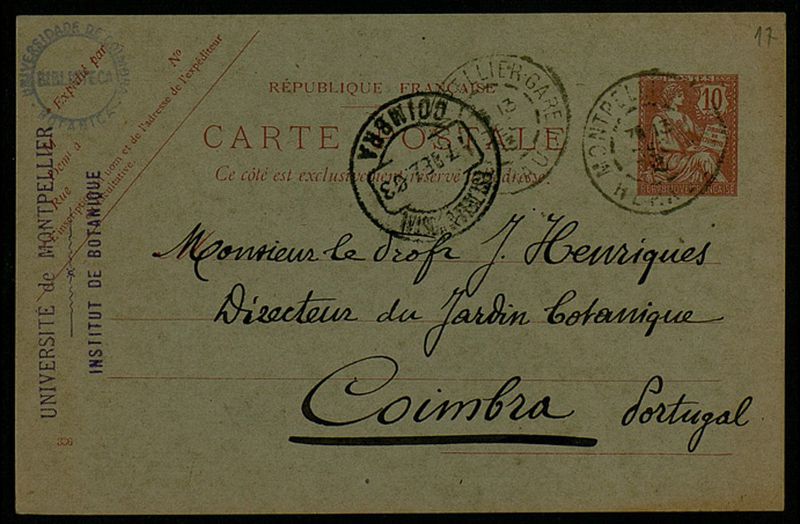 17
UNIVERSIDADE DE COIMBRA
BIBLIOTECA
BOTANICA
Expédié par
Nº
Demi à
Rue
nom et de l'adresse de l'expéditeur
inscription facultative.
RÉPUBLIQUE FRANÇAISE
CARTE POSTALE
Ce côté est exclusivement réservé à l'adresse.
MONTPELLIER-GARE
13
MONTPELLIER
13
HÉRAULT
POSTES
10
REPUBLIQUE FRANÇAISE
COIMBRA
7 DEZ 03
UNIVERSITÉ de MONTPELLIER
INSTITUT DE BOTANIQUE
Monsieur le Profr J. Henriques
Directeur du Jardin botanique
Coimbra Portugal
336